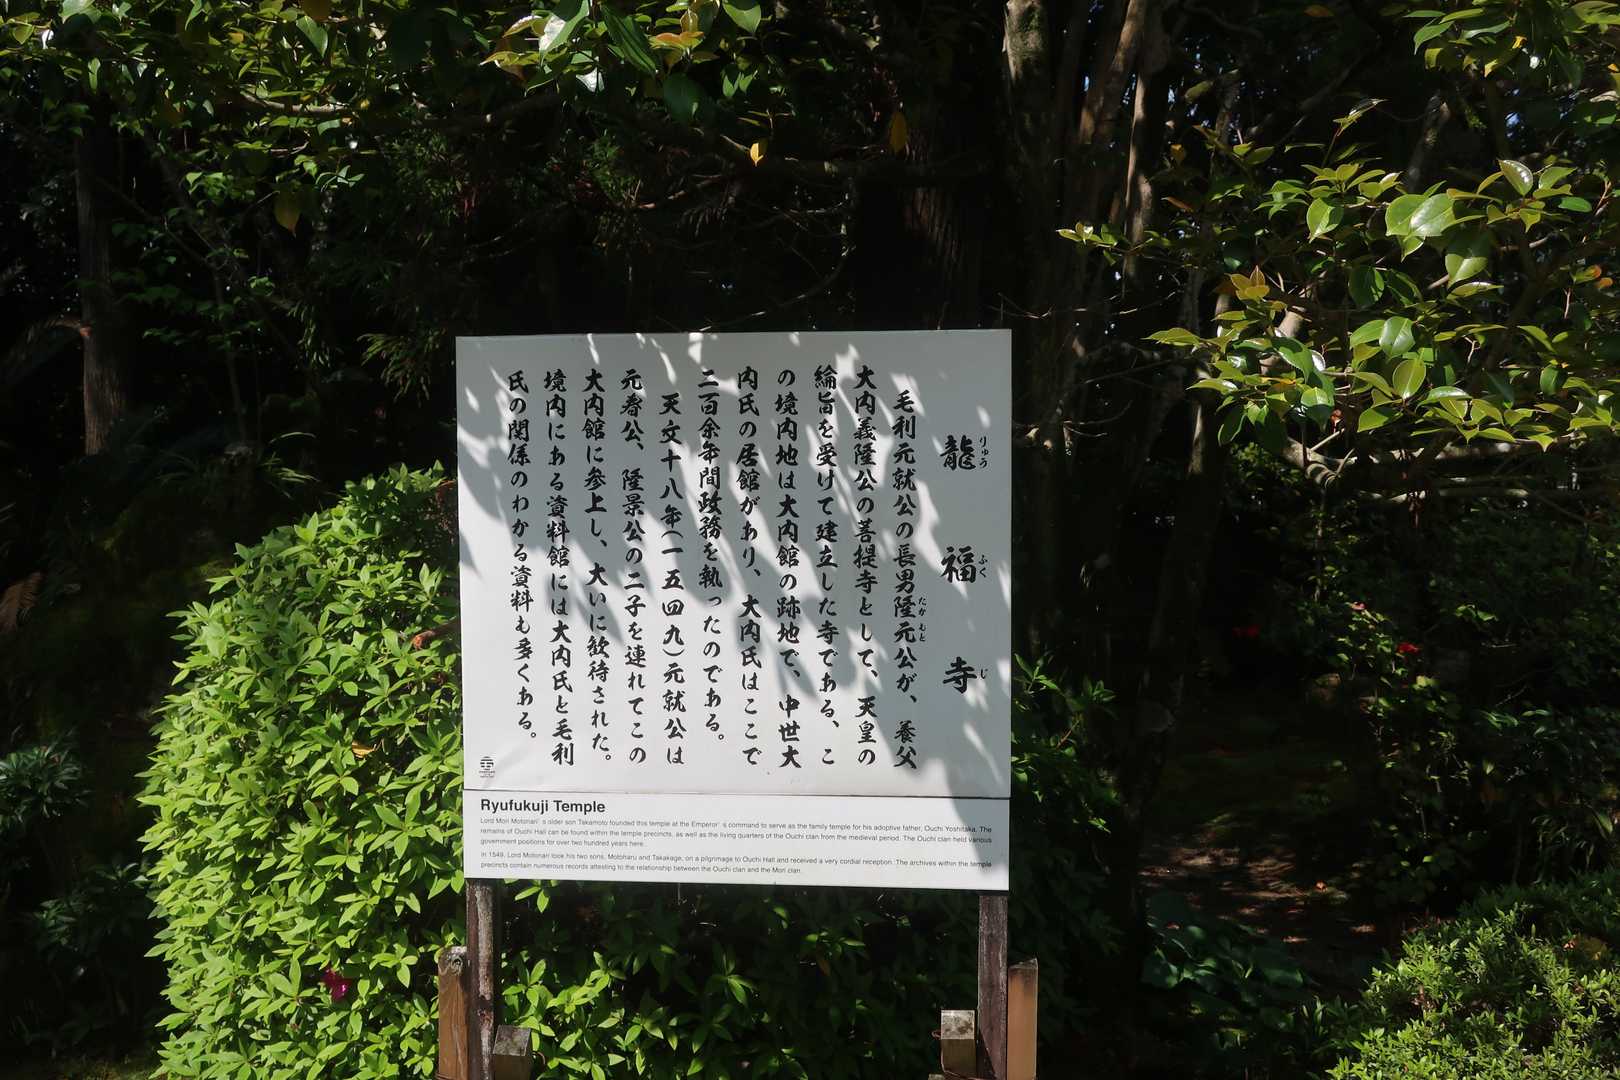 龍福寺
りゅう ふく じ
毛利元就公の長男隆元公が、養父
たかもと
大内義隆公の菩提寺として、天皇の
綸旨を受けて建立した寺である、こ
の境内地は大内館の跡地で、中世大
内氏の居館があり、大内氏はここで
二百余年間政務を執ったのである。
天文十八年(一五四九)元就公は
元春公、隆景公の二子を連れてこの
大内館に参上し、大いに歓待された。
境内にある資料館には大内氏と毛利
氏の関係のわかる資料も多くある。
Ryufukuji Temple
Lord Mori Motonari's older son Takamoto founded this temple at the Emperor's command to serve as the family temple for his adoptive father, Ouchi Yoshitaka. The
remains of Ouchi Hall can be found within the temple precincts, as well as the living quarters of the Ouchi clan from the medieval period. The Ouchi clan held various
government positions for over two hundred years here.
In 1549, Lord Motonari took his two sons, Motoharu and Takakage, on a pilgrimage to Ouchi Hall and received a very cordial reception. The archives within the temple
precincts contain numerous records attesting to the relationship between the Ouchi clan and the Mori clan.